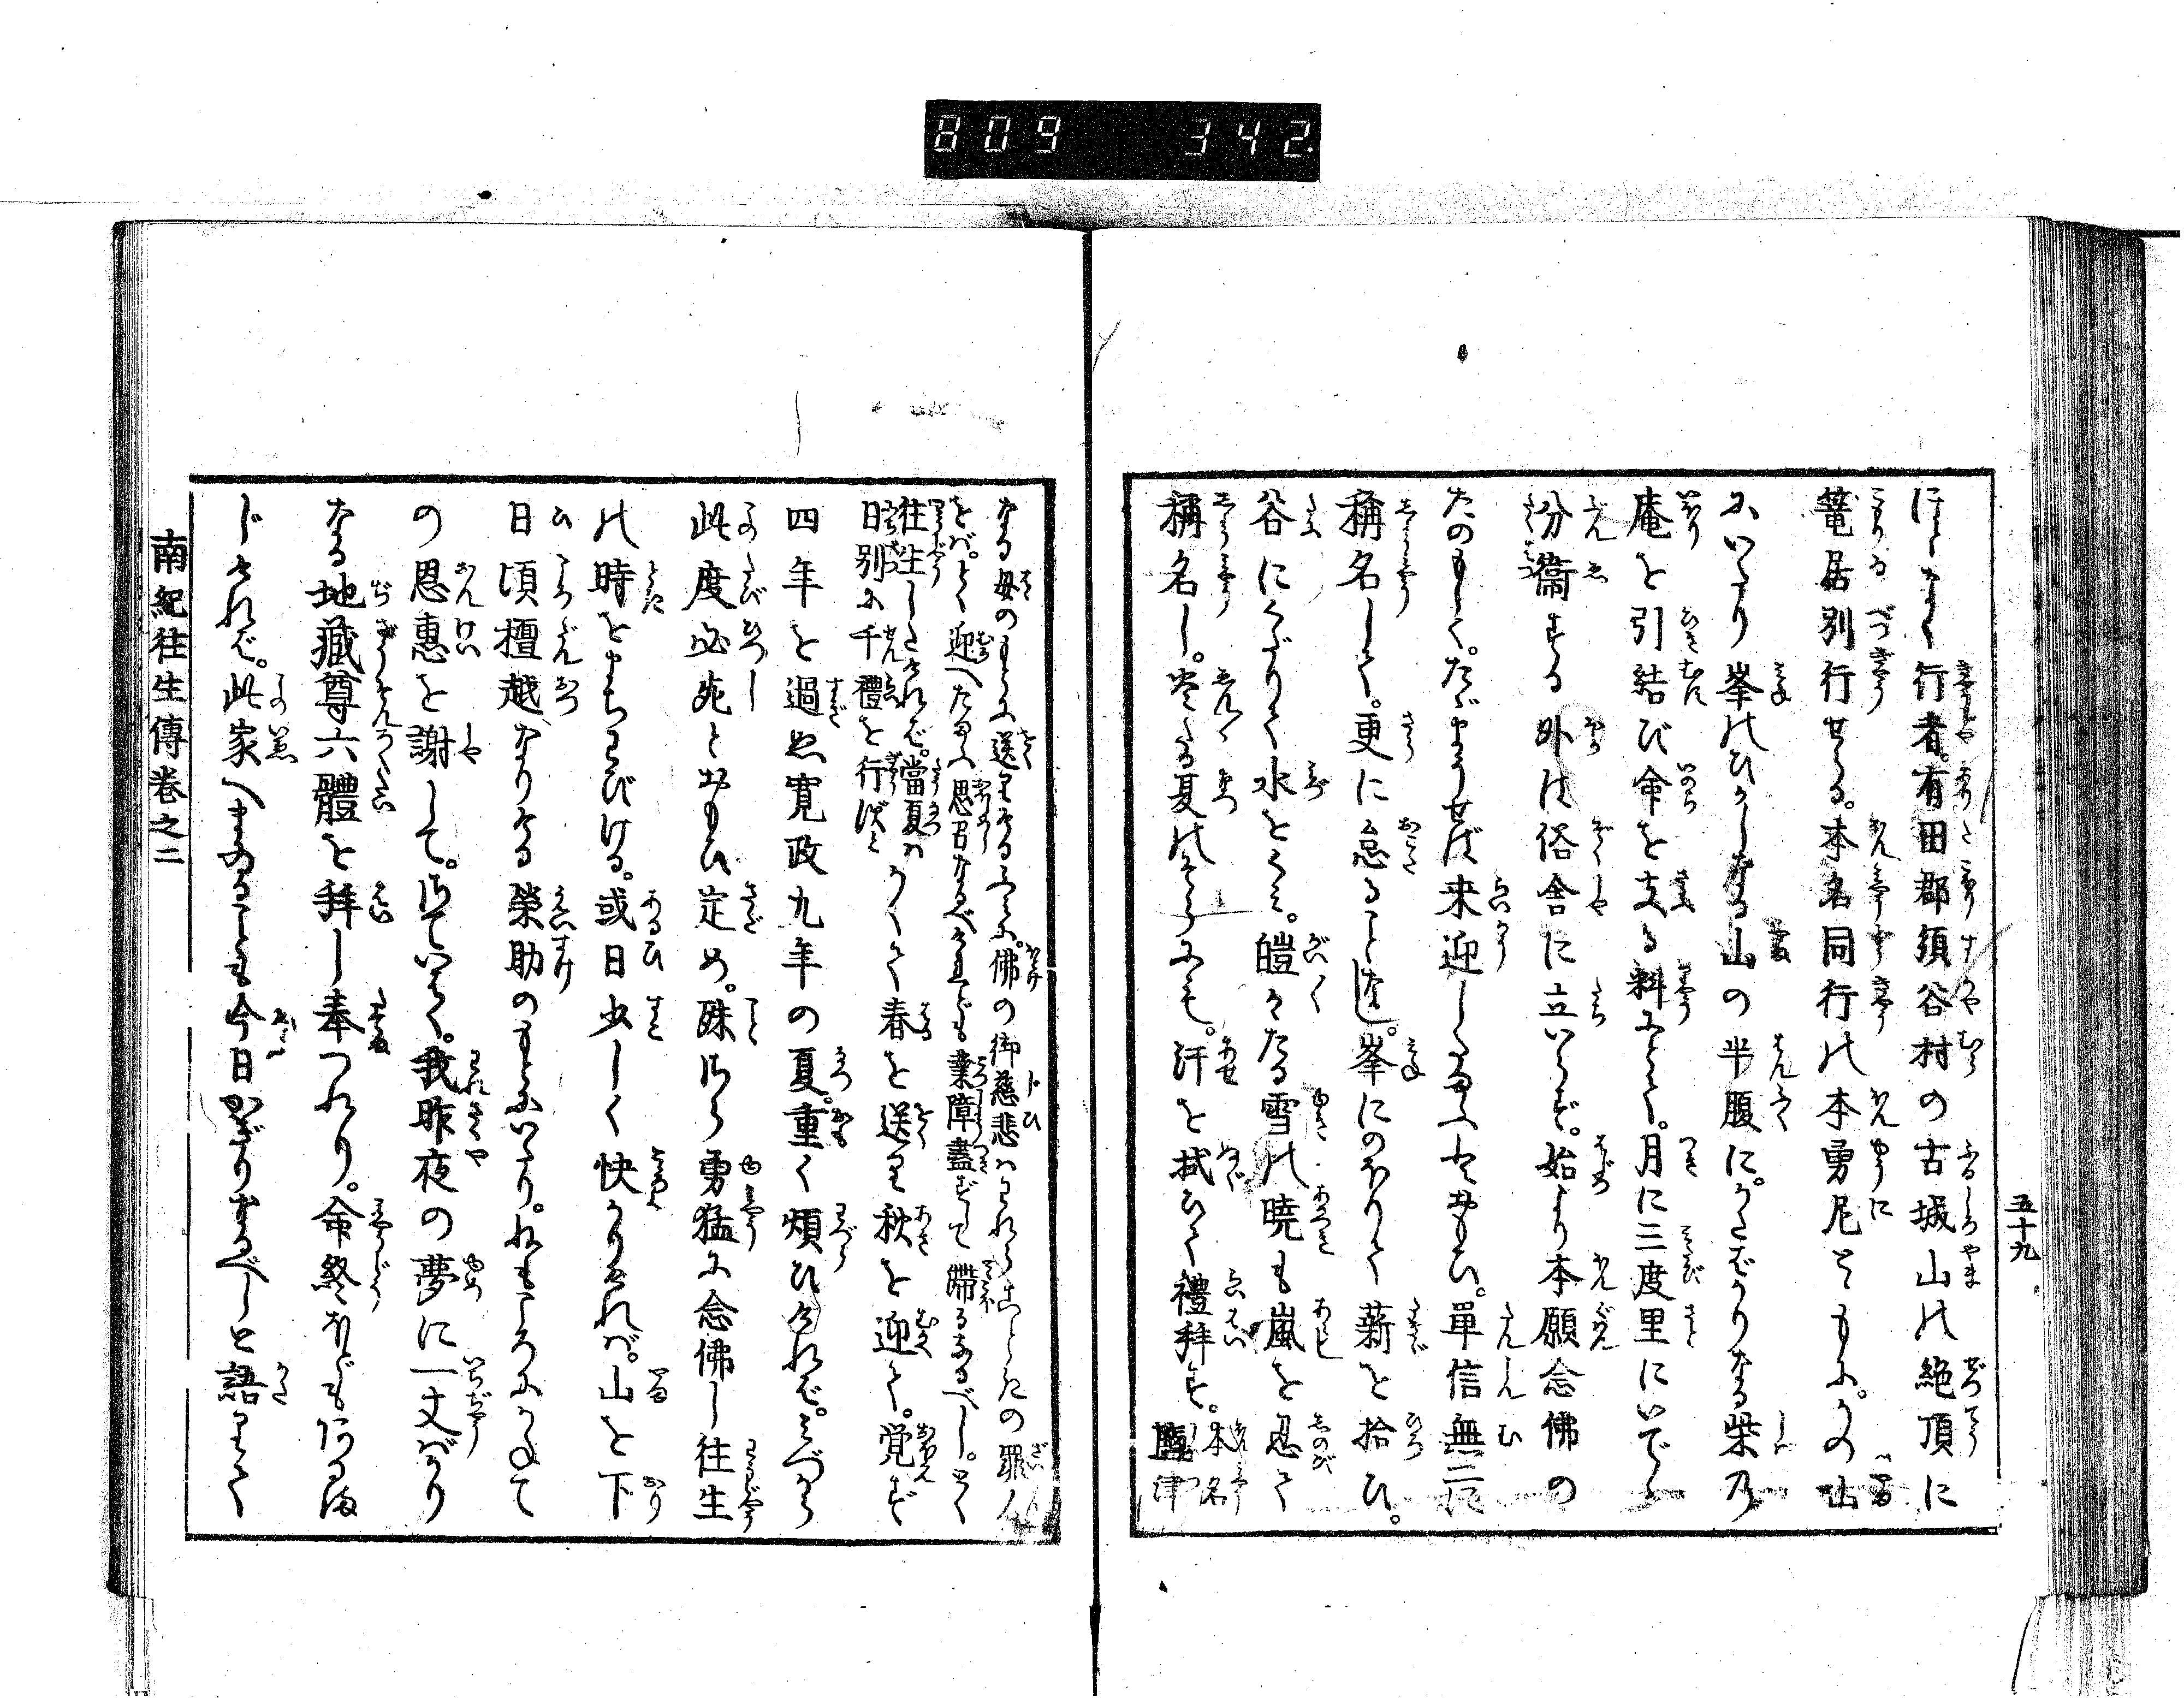 809 342
五十九
ほとなく行者。有田郡須谷村の古城山の絶頂に
篭居別行せる。本名同行の本勇尼とともに。かの山
にいたり峯のひがしなる山の半腹に。かたばかりなる柴の
庵を引結び命を支る料にとて。月に三度里にいでゝ
分衞する外は俗舎に立いらず。始より本願念佛の
たのもしく。たゞまうせば来迎したまふとおもひ。單信無二に
稱名して。更に怠ることなし。峯にのぼりて薪を拾ひ。
谷にくだりて水をくみ。皚々たる雪の暁も嵐を忍て
稱名し。炎たる夏のそらにも。汗を拭ひて禮拜す。本名
津
なる母のもとに送りけるふみに。佛の御慈悲はわれらこときの罪人
をば。とく迎へたまふ思召なるべけれども業障盡ずして滯るなるべし。とく
往生したければ。當夏は
日別に千禮を行ほと
かくて春を送り秋を迎て。覚ず
四年を過ぬ寛政九年の夏。重く煩ひければ。みづから
此度必死とおもひ定め。殊さら勇猛に念佛し往生
の時をまちわびける。或日少しく快かりければ。山を下り
日頃檀越なりける榮助のもとにいたり。ねもころにかねて
の恩惠を謝して。さていはく。我昨夜の夢に一丈ばかり
なる地藏尊六體を拜し奉つれり。命終ほどもあるま
じければ。此家へまゐることも今日かぎりなるべしと語りて
南紀往生傳卷之二